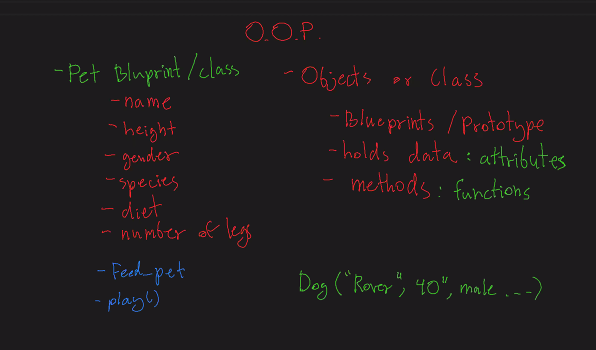 O.O.P.
- Pet Bluprint/class
- name
- height
- gender
- species
- diet
- number of legs
- Feed_pet
- play()
- Objects or Class
- Blueprints / Prototype
- holds data : attributes
- methods : functions
Dog ("Rover", 40", male . ---)